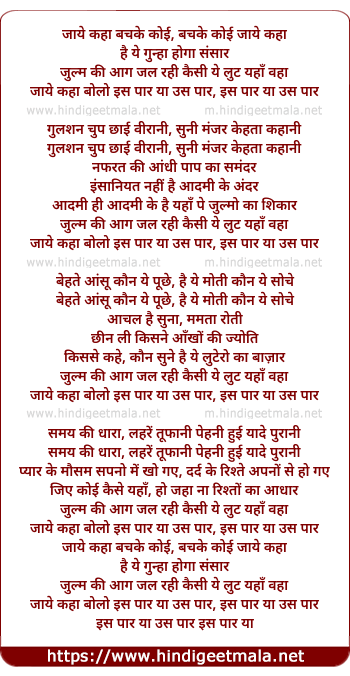 जाये कहा बचके कोई, बचके कोई जाये कहा
है ये गुन्हा होगा संसार
जुल्म की आग जल रही कैसी ये लुट यहाँ वहा
जाये कहा बोलो इस पार या उस पार, इस पार या उस पार
www.hindigeetmala.net m.hindigeetmala.net
गुलशन चुप छाई वीरानी, सुनी मंजर केहता कहानी
गुलशन चुप छाई वीरानी, सुनी मंजर केहता कहानी
नफरत की आंधी पाप का समंदर
इंसानियत नहीं है आदमी के अंदर
आदमी ही आदमी के है यहाँ पे जुल्मो का शिकार
जुल्म की आग जल रही कैसी ये लुट यहाँ वहा
जाये कहा बोलो इस पार या उस पार, इस पार या उस पार
www.hindigeetmala.net m.hindigeetmala.net
बेहते आंसू कौन ये पूछे, है ये मोती कौन ये सोचे
बेहते आंसू कौन ये पूछे, है ये मोती कौन ये सोचे
आचल है सुना, ममता रोती
छीन ली किसने आँखों की ज्योति
किससे कहे, कौन सुने है ये लुटेरो का बाज़ार
जुल्म की आग जल रही कैसी ये लुट यहाँ वहा
जाये कहा बोलो इस पार या उस पार, इस पार या उस पार
www.hindigeetmala.net m.hindigeetmala.net
समय की धारा, लहरें तूफानी पेहनी हुई यादे पुरानी
समय की धारा, लहरें तूफानी पेहनी हुई यादे पुरानी
प्यार के मौसम सपनो में खो गए, दर्द के रिश्ते अपनों से हो गए
जिए कोई कैसे यहाँ, हो जहा ना रिश्तों का आधार
जुल्म की आग जल रही कैसी ये लुट यहाँ वहा
जाये कहा बोलो इस पार या उस पार, इस पार या उस पार
जाये कहा बचके कोई, बचके कोई जाये कहा
है ये गुन्हा होगा संसार
जुल्म की आग जल रही कैसी ये लुट यहाँ वहा
जाये कहा बोलो इस पार या उस पार, इस पार या उस पार
इस पार या उस पार इस पार या
https://www.hindigeetmala.net